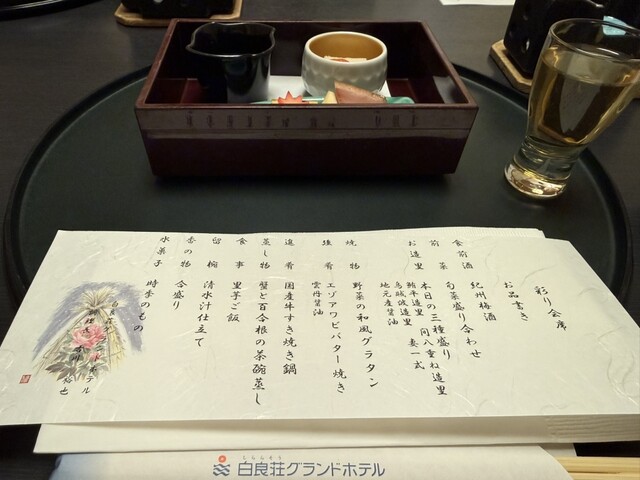 彩り会席
お品書き
食前酒 紀州梅酒
前菜 旬菜盛り合わせ
お造里 本日の三種盛り
鮪平造里 間八重ね造里
烏賊波造里 妻一式
地元産醤油
焼物 野菜の和風グラタン
強肴 エゾアワビバター焼き
雲丹醤油
進肴 国産牛すき焼き鍋
蒸し物 蟹と百合根の茶碗蒸し
食事 里芋ご飯
留椀 清水汁仕立て
香の物 合盛り
水菓子 時季のもの
白良荘グランドホテル
しららそう
白良荘グランドホテル